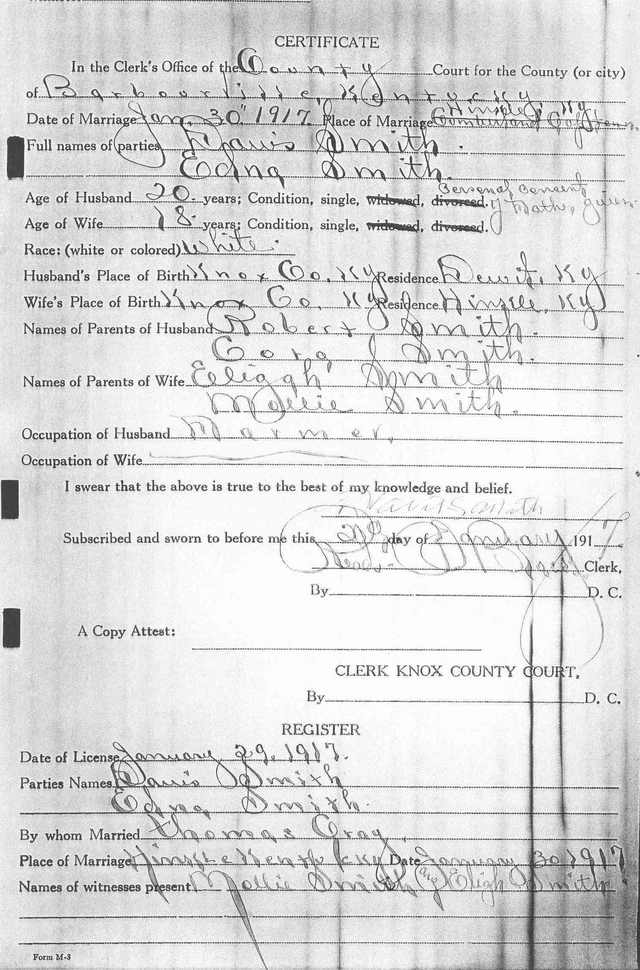 CERTIFICATE
In the Clerk's Office of the County Court for the County (or city)
of Barbourville, Kentucky
Date of Marriage Jan. 30" 1917. Place of Marriage Hinkle, Ky
Full names of parties Davis Smith.
Edna Smith.
Age of Husband 20 years; Condition, single, widowed, divorced. Personal consent
Age of Wife 18 years; Condition, single, widowed, divorced. of Mother given
Race: (white or colored) White.
Husband's Place of Birth Knox Co. Ky Residence Dewitt, Ky
Wife's Place of Birth Knox Co. Ky Residence Hinkle, Ky
Names of Parents of Husband Robert Smith.
Cora Smith.
Names of Parents of Wife Eliagh Smith
Mollie Smith.
Occupation of Husband Farmer.
Occupation of Wife
I swear that the above is true to the best of my knowledge and belief.
Davis Smith
Subscribed and sworn to before me this 29 day of January 1917
Read Clerk,
By D. C.
A Copy Attest:
CLERK KNOX COUNTY COURT.
By D. C.
REGISTER
Date of License January 29, 1917.
Parties Names Davis Smith
Edna Smith.
By whom Married Thomas Gray,
Place of Marriage Hinkle Kentucky Date January 30 1917
Names of witnesses present Mollie Smith and Eligh Smith
Form M-3